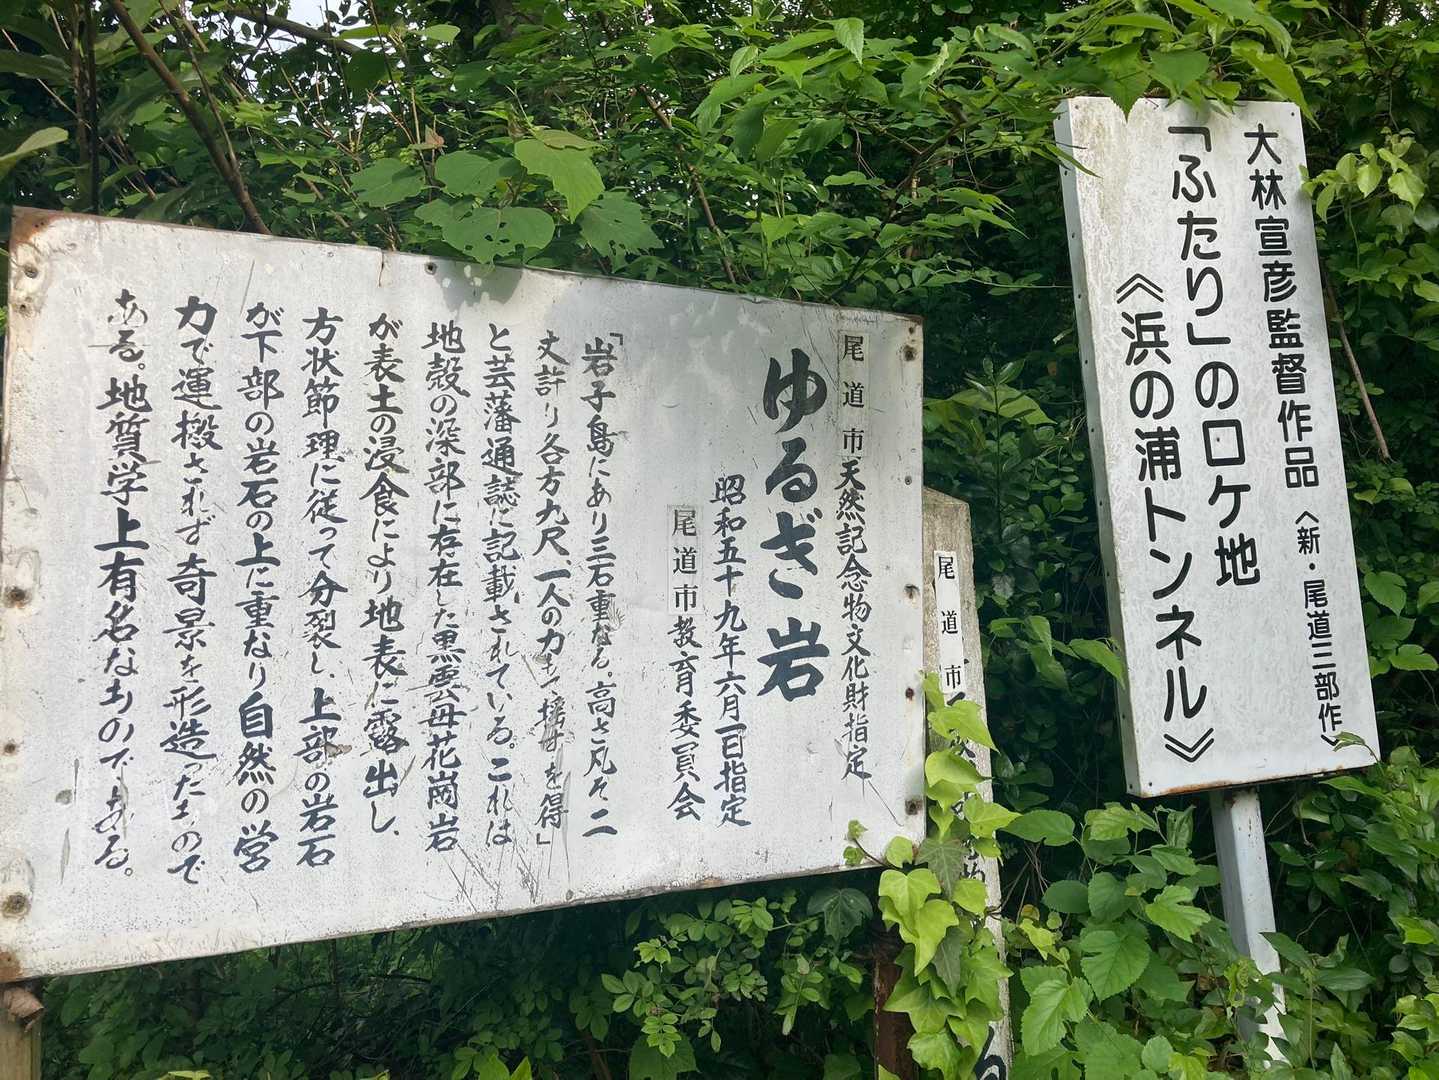 大林宣彦監督作品〈新・尾道三部作〉
「ふたり」のロケ地
《浜の浦トンネル》
尾道市天然記念物文化財指定
ゆるぎ岩
昭和五十九年六月一日指定
尾道市教育委員会
「岩子島にあり三石重なる。高さ凡そ二
丈許り各方九尺、一人の力を得」
と芸藩通誌に記載されている。これは
地殻の深部に存在した黒雲母花崗岩
が表土の浸食により地表に露出し、
方状節理に従って分裂し、上部の岩石
が下部の岩石の上に重なり自然の営
力で運搬されず奇景を形造ったもので
ある。地質学上有名なものである。
尾道市